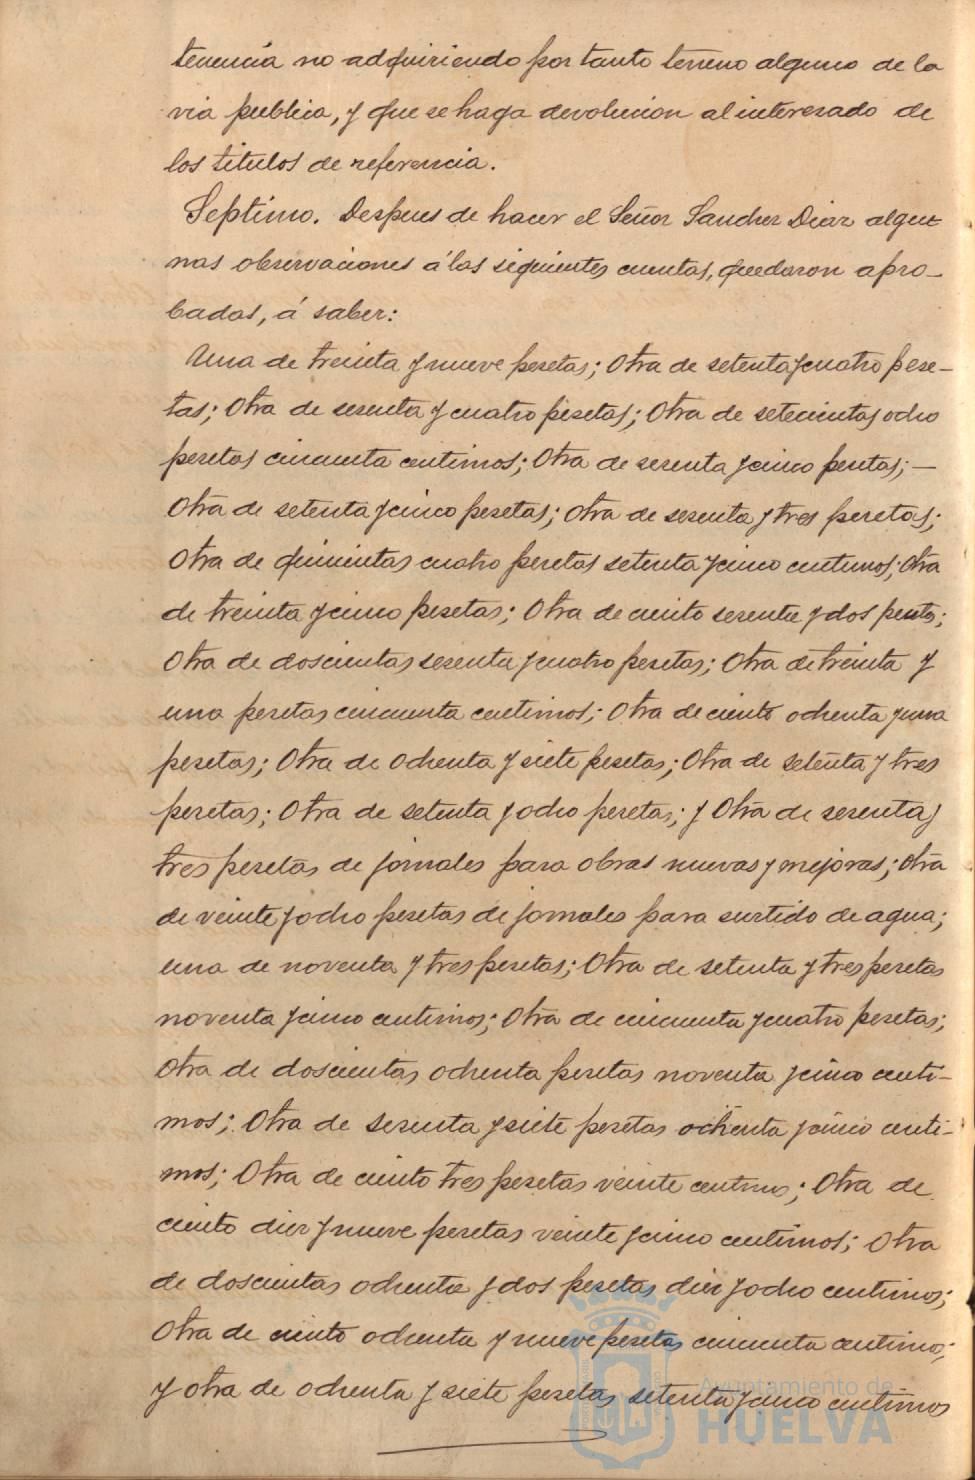 tenencia no adquiriendo por tanto terreno alguno de la
via publica, y que se haga devolucion al interesado de
los titulos de referencia.
Septimo. Despues de hacer el Señor Sanchez Diaz algu-
nas observaciones á las siguientes cuentas, quedaron apro-
badas, á saber:
Una de treinta y nueve pesetas; Otra de setenta y cuatro pese-
tas; Otra de sesenta y cuatro pesetas; Otra de setecientas ocho
pesetas cincuenta centimos; Otra de sesenta y cinco pesetas; —
Otra de setenta y cinco pesetas; Otra de sesenta y tres pesetas;
Otra de quinientas cuatro pesetas setenta y cinco centimos; Otra
de treinta y cinco pesetas; Otra de ciento sesenta y dos pesetas;
Otra de doscientas sesenta y cuatro pesetas; Otra de treinta y
una pesetas cincuenta centimos; Otra de ciento ochenta y una
pesetas; Otra de ochenta y siete pesetas; Otra de setenta y tres
pesetas; Otra de setenta y ocho pesetas; y Otra de sesenta y
tres pesetas de jornales para obras nuevas y mejoras; Otra
de veinte y ocho pesetas de jornales para surtido de agua;
una de noventa y tres pesetas; Otra de setenta y tres pesetas
noventa y cinco centimos; Otra de cincuenta y cuatro pesetas;
Otra de doscientas ochenta pesetas noventa y cinco centi-
mos; Otra de sesenta y siete pesetas ochenta y cinco centi-
mos; Otra de ciento tres pesetas veinte centimos; Otra de
ciento diez y nueve pesetas veinte y cinco centimos; Otra
de doscientas ochenta y dos pesetas diez y ocho centimos;
Otra de ciento ochenta y nueve pesetas cincuenta centimos;
y otra de ochenta y siete pesetas setenta y cinco centimos
Ayuntamiento de
HUELVA